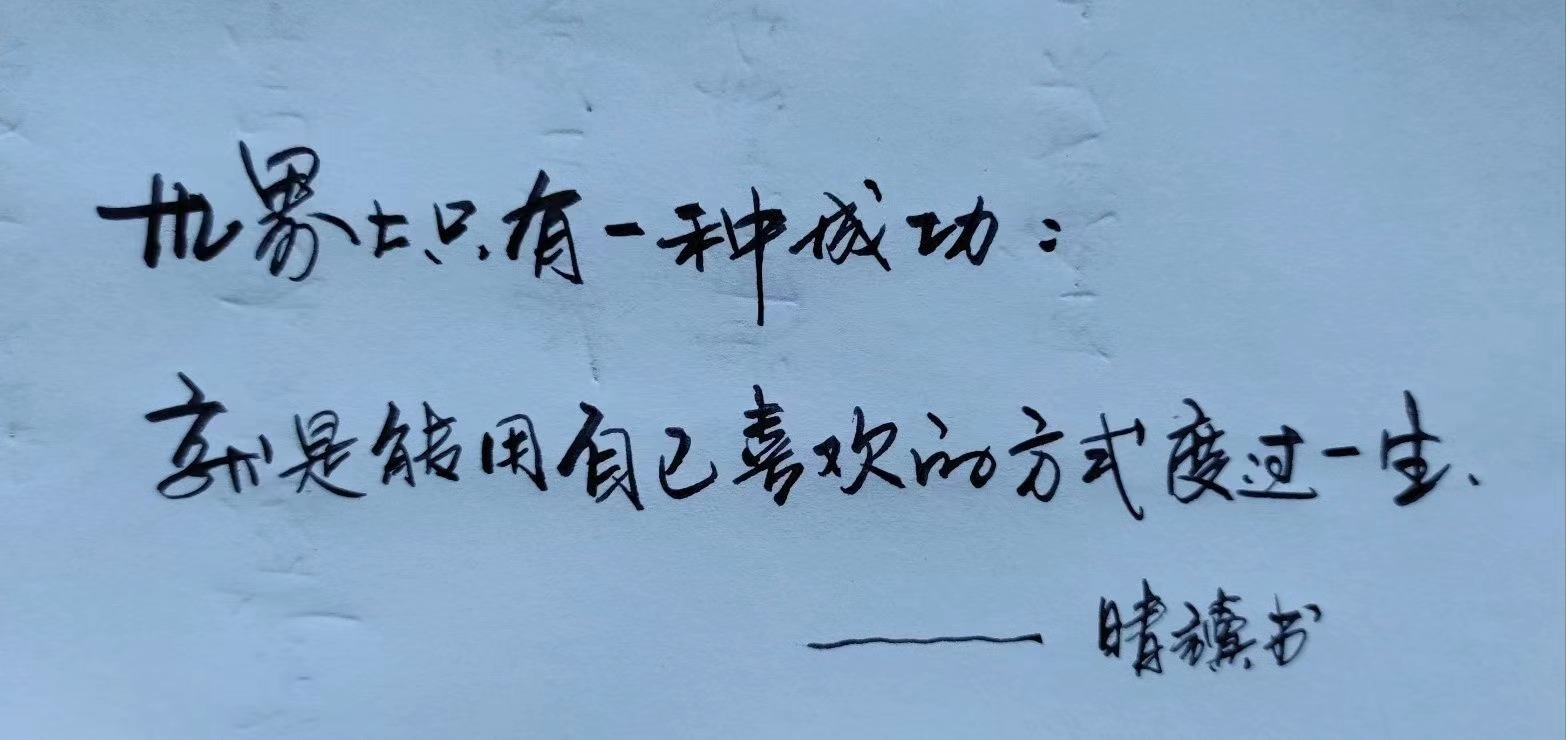 世界上只有一种成功：
就是能用自己喜欢的方式度过一生、
—— 晴读书